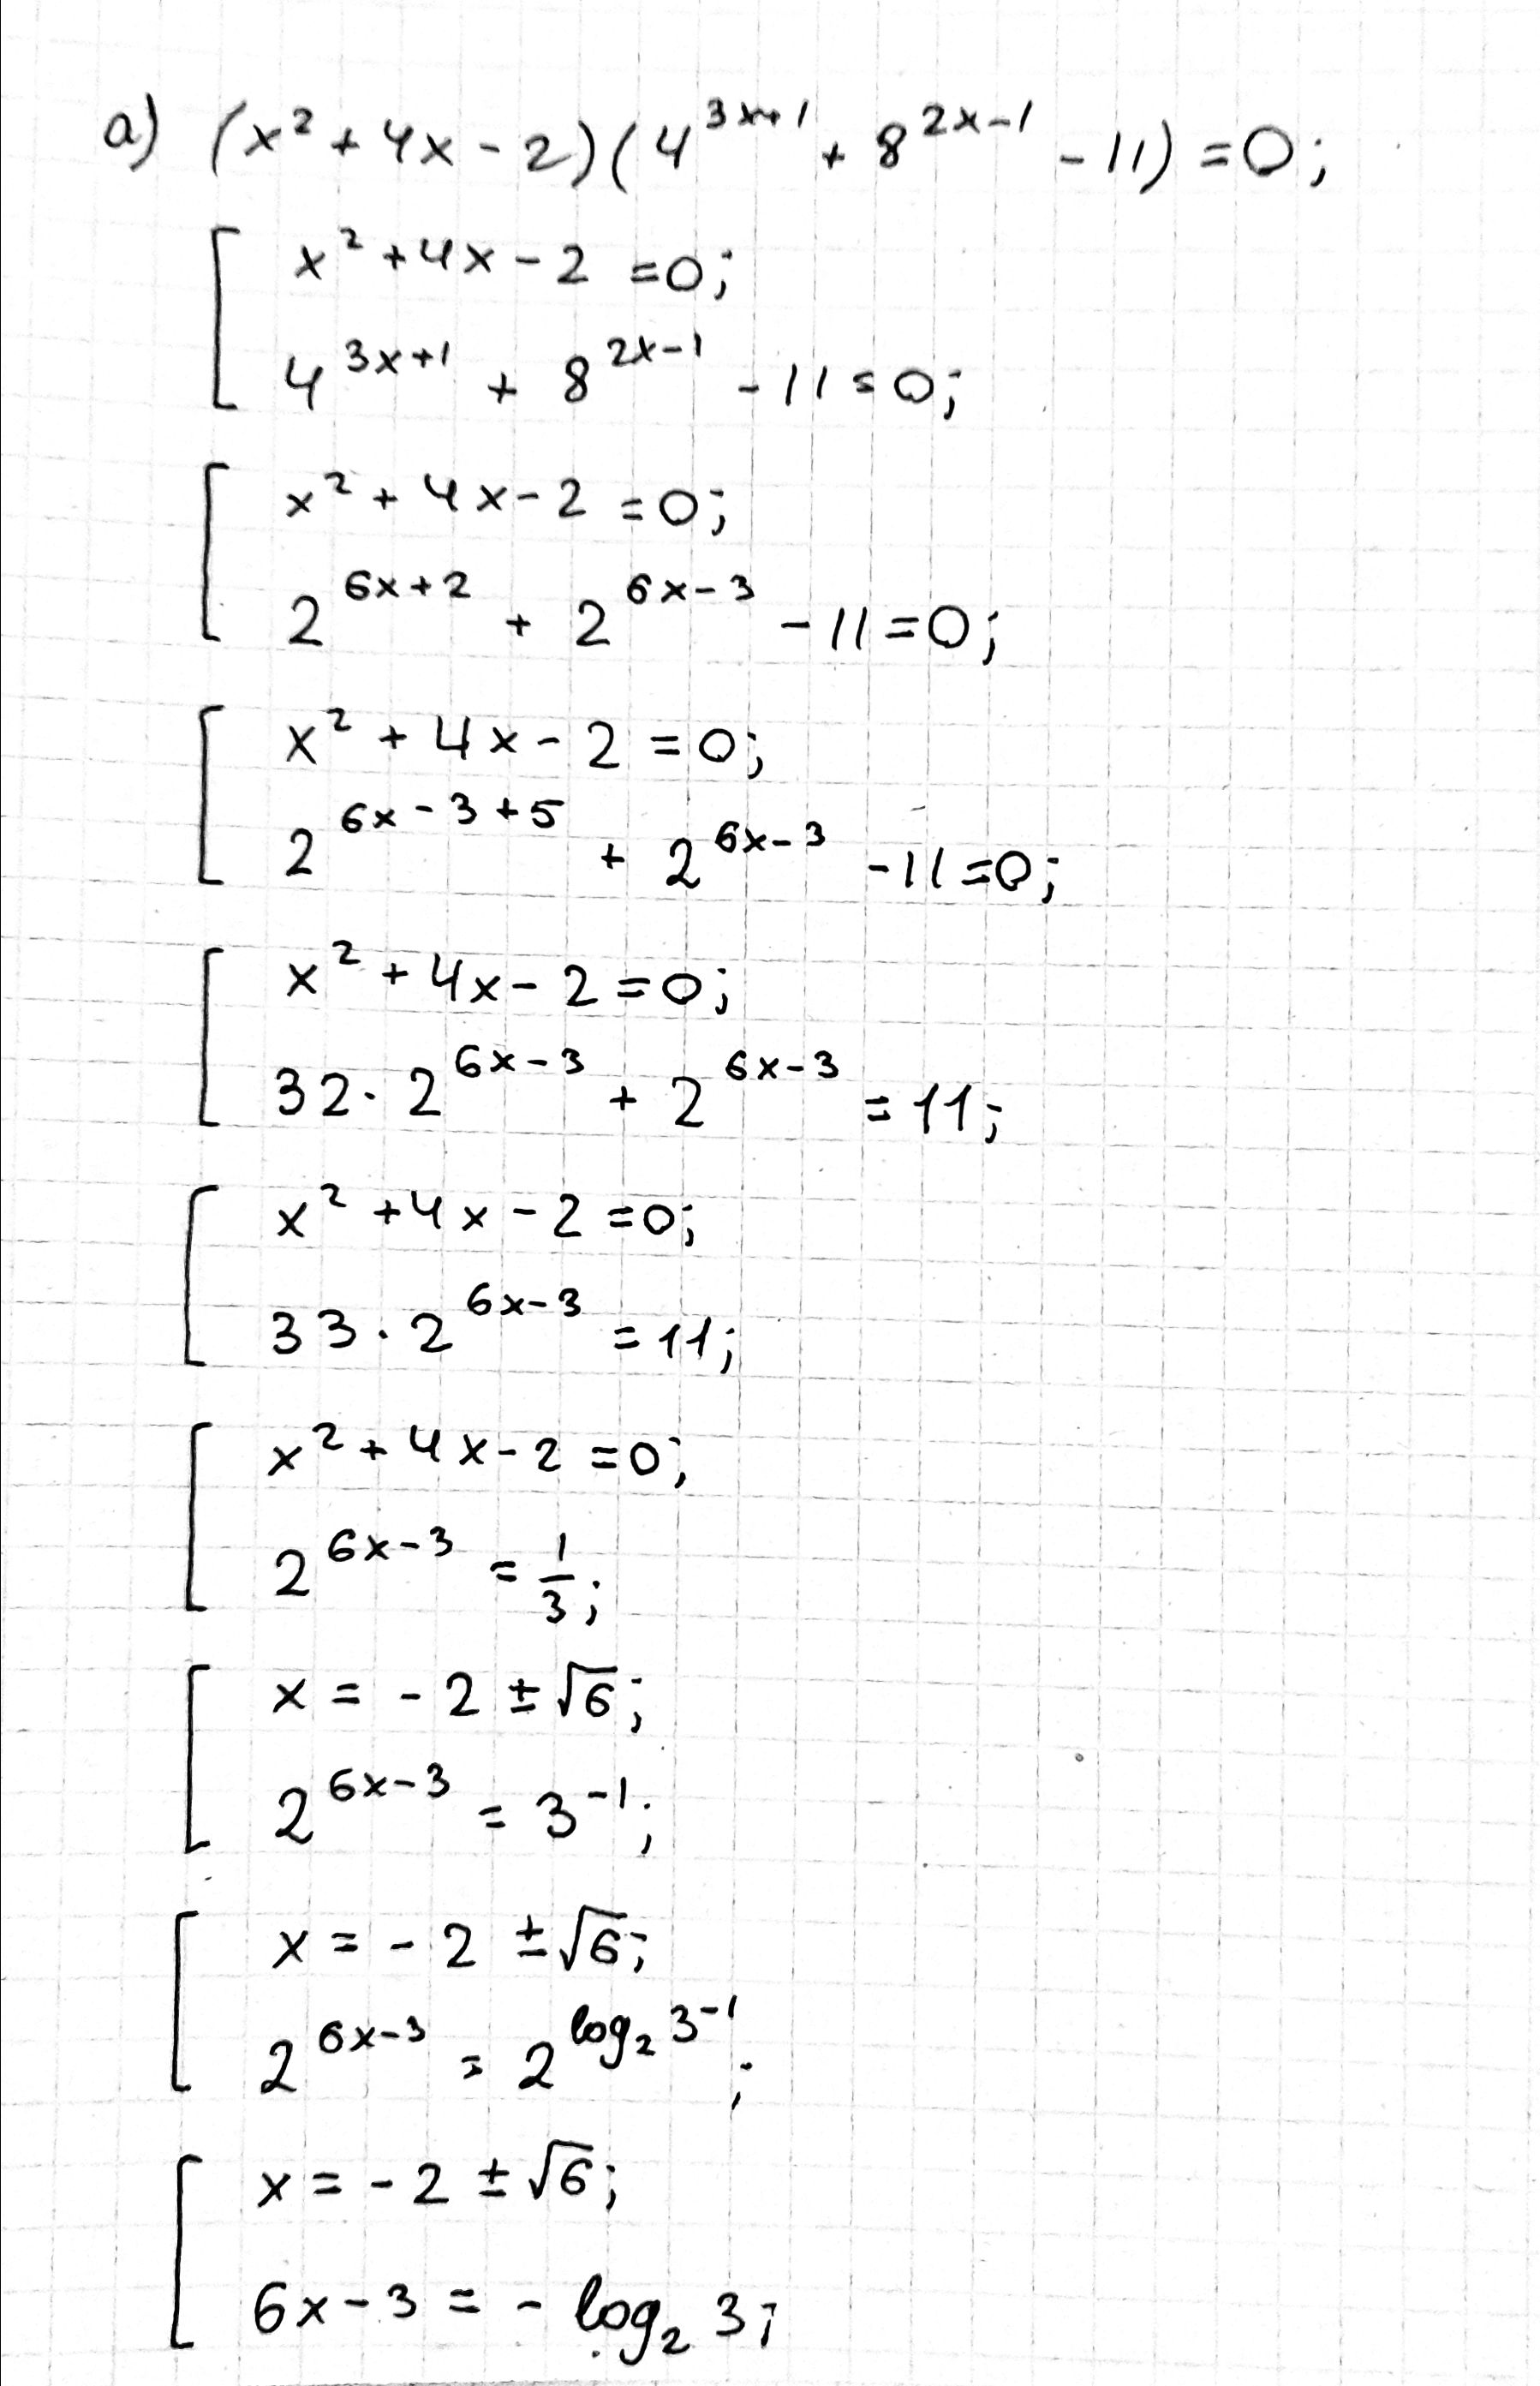 а) (x² + 4x - 2)(4^{3x+1} + 8^{2x-1} - 11) = 0;
x² + 4x - 2 = 0;
4^{3x+1} + 8^{2x-1} - 11 = 0;
x² + 4x - 2 = 0;
2^{6x+2} + 2^{6x-3} - 11 = 0;
x² + 4x - 2 = 0;
2^{6x-3+5} + 2^{6x-3} - 11 = 0;
x² + 4x - 2 = 0;
32 · 2^{6x-3} + 2^{6x-3} = 11;
x² + 4x - 2 = 0;
33 · 2^{6x-3} = 11;
x² + 4x - 2 = 0;
2^{6x-3} = 1/3;
x = -2 ± √6;
2^{6x-3} = 3^{-1};
x = -2 ± √6;
2^{6x-3} = 2^{log₂ 3^{-1}};
x = -2 ± √6;
6x - 3 = - log₂ 3;